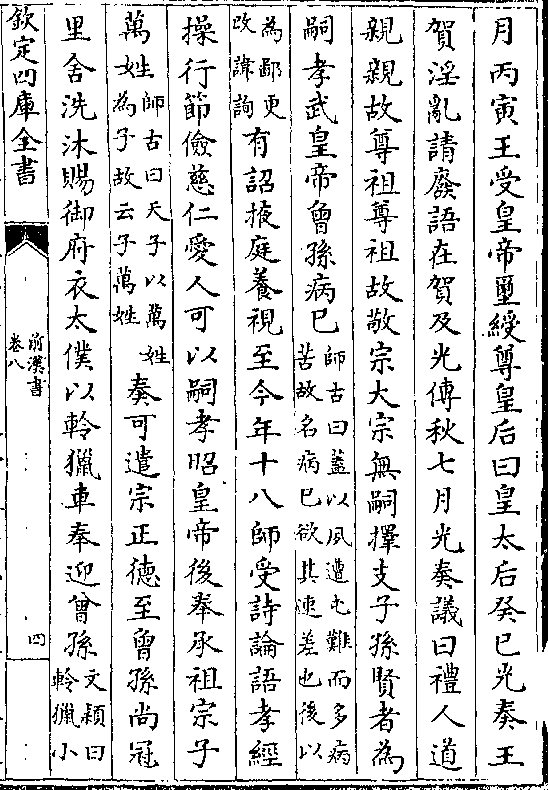 月丙寅王受皇帝璽綬尊皇后曰皇太后癸巳光奏王
賀淫亂請廢語在賀及光傳秋七月光奏議曰禮人道
親親故尊祖尊祖故敬宗大宗無嗣擇支子孫賢者為
嗣孝武皇帝曾孫病已師古曰蓋以夙遭屯難而多病苦故名病已欲其速差也後以
為鄙更改諱詢有詔掖庭養視至今年十八師受詩論語孝經
操行節儉慈仁愛人可以嗣孝昭皇帝後奉承祖宗子
萬姓師古曰天子以萬姓為子故云子萬姓奏可遣宗正德至曾孫尚冠
里舍洗沐賜御府衣太僕以軨獵車奉迎曾孫文穎曰軨獵小
欽定四庫全書
前漢書
卷八
四